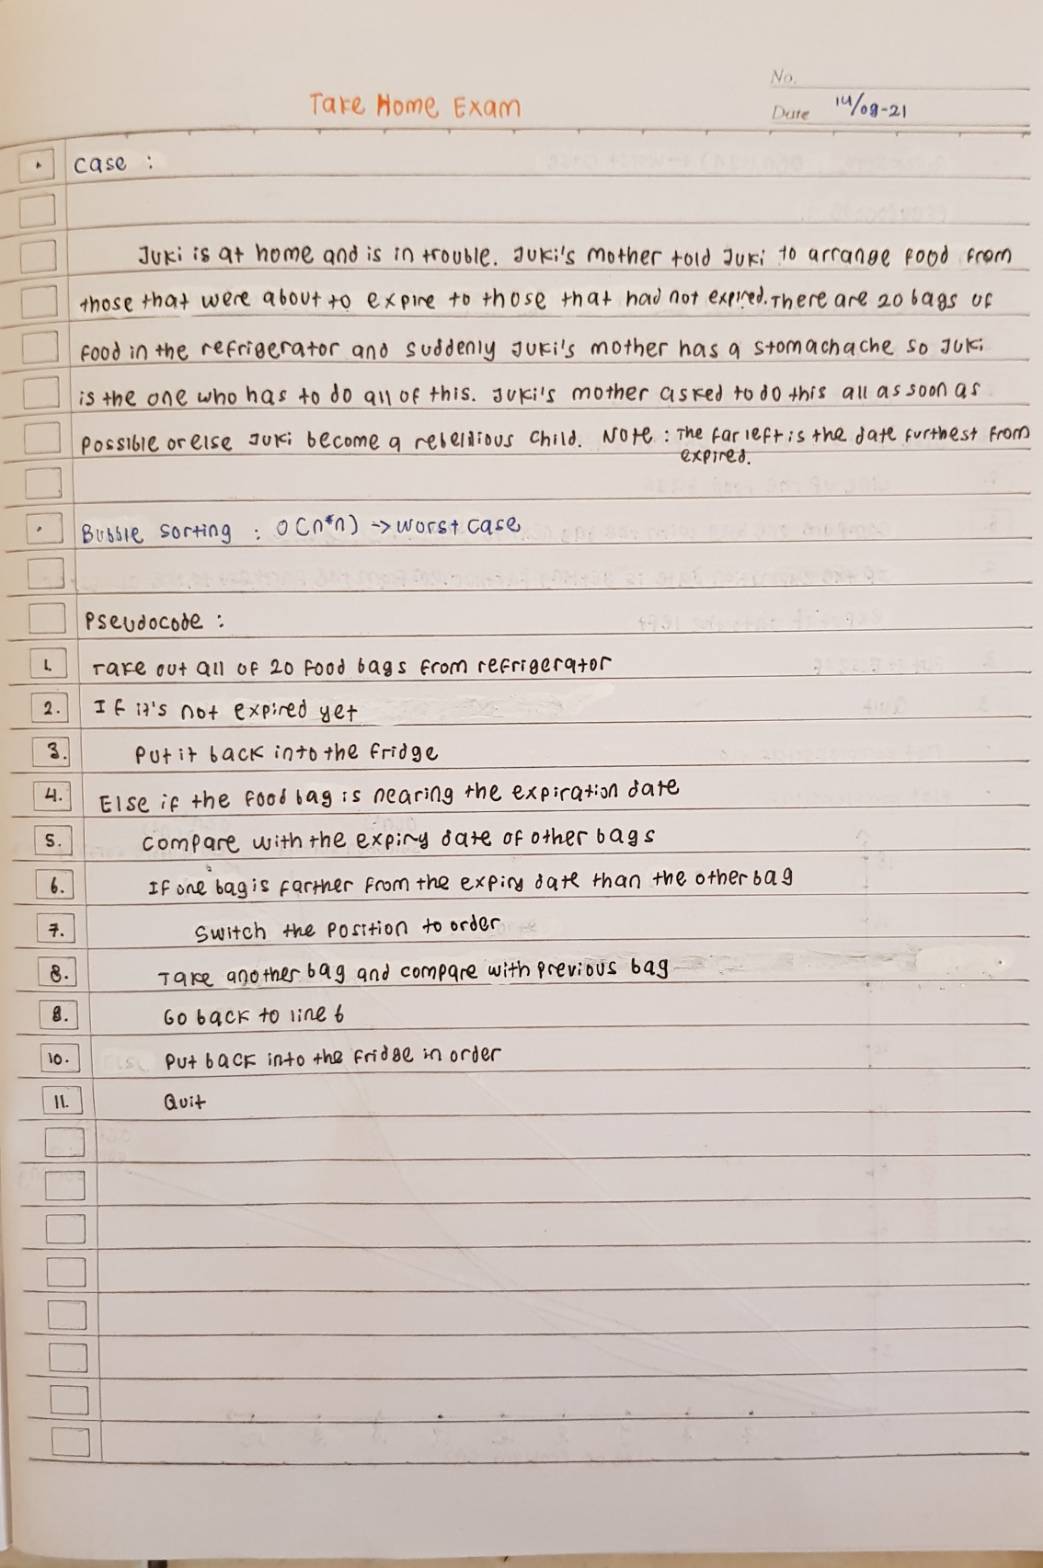 No.
Take Home Exam
Date 14/08-21
• case :
Juki is at home and is in trouble. Juki's mother told Juki to arrange food from
those that were about to expire to those that had not expired. There are 20 bags of
food in the refrigerator and suddenly Juki's mother has a stomachache so Juki
is the one who has to do all of this. Juki's mother asked to do this all as soon as
possible or else Juki become a rebellious child. Note : The far left is the date furthest from
expired.
• Bubble sorting : O(n*n) → worst case
Pseudocode :
1. Take out all of 20 food bags from refrigerator
2. If it's not expired yet
3. Put it back into the fridge
4. Else if the food bag is nearing the expiration date
5. compare with the expiry date of other bags
6. If one bag is farther from the expiry date than the other bag
7. Switch the position to order
8. Take another bag and compare with previous bag
8. Go back to line 6
10. Put back into the fridge in order
11. Quit